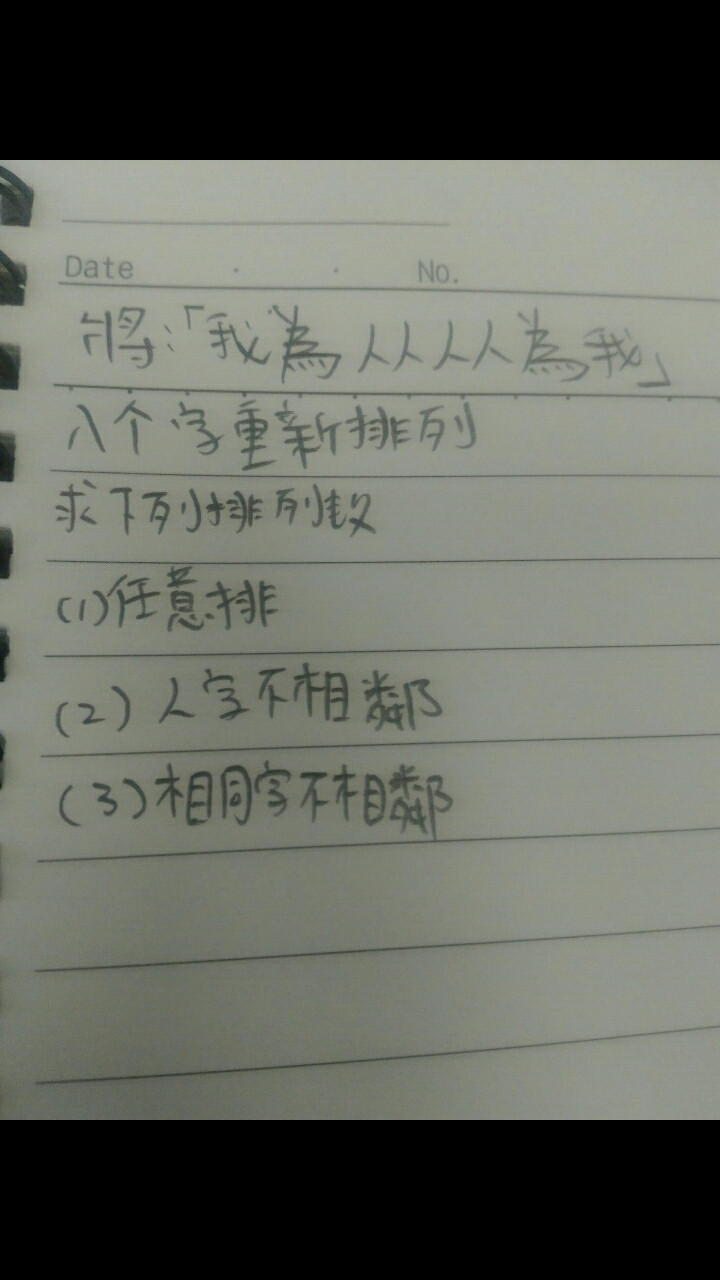 Date . . No.
將:「我為人人人人為我」
八个字重新排列
求下列排列数
(1)任意排
(2)人字不相鄰
(3)相同字不相鄰